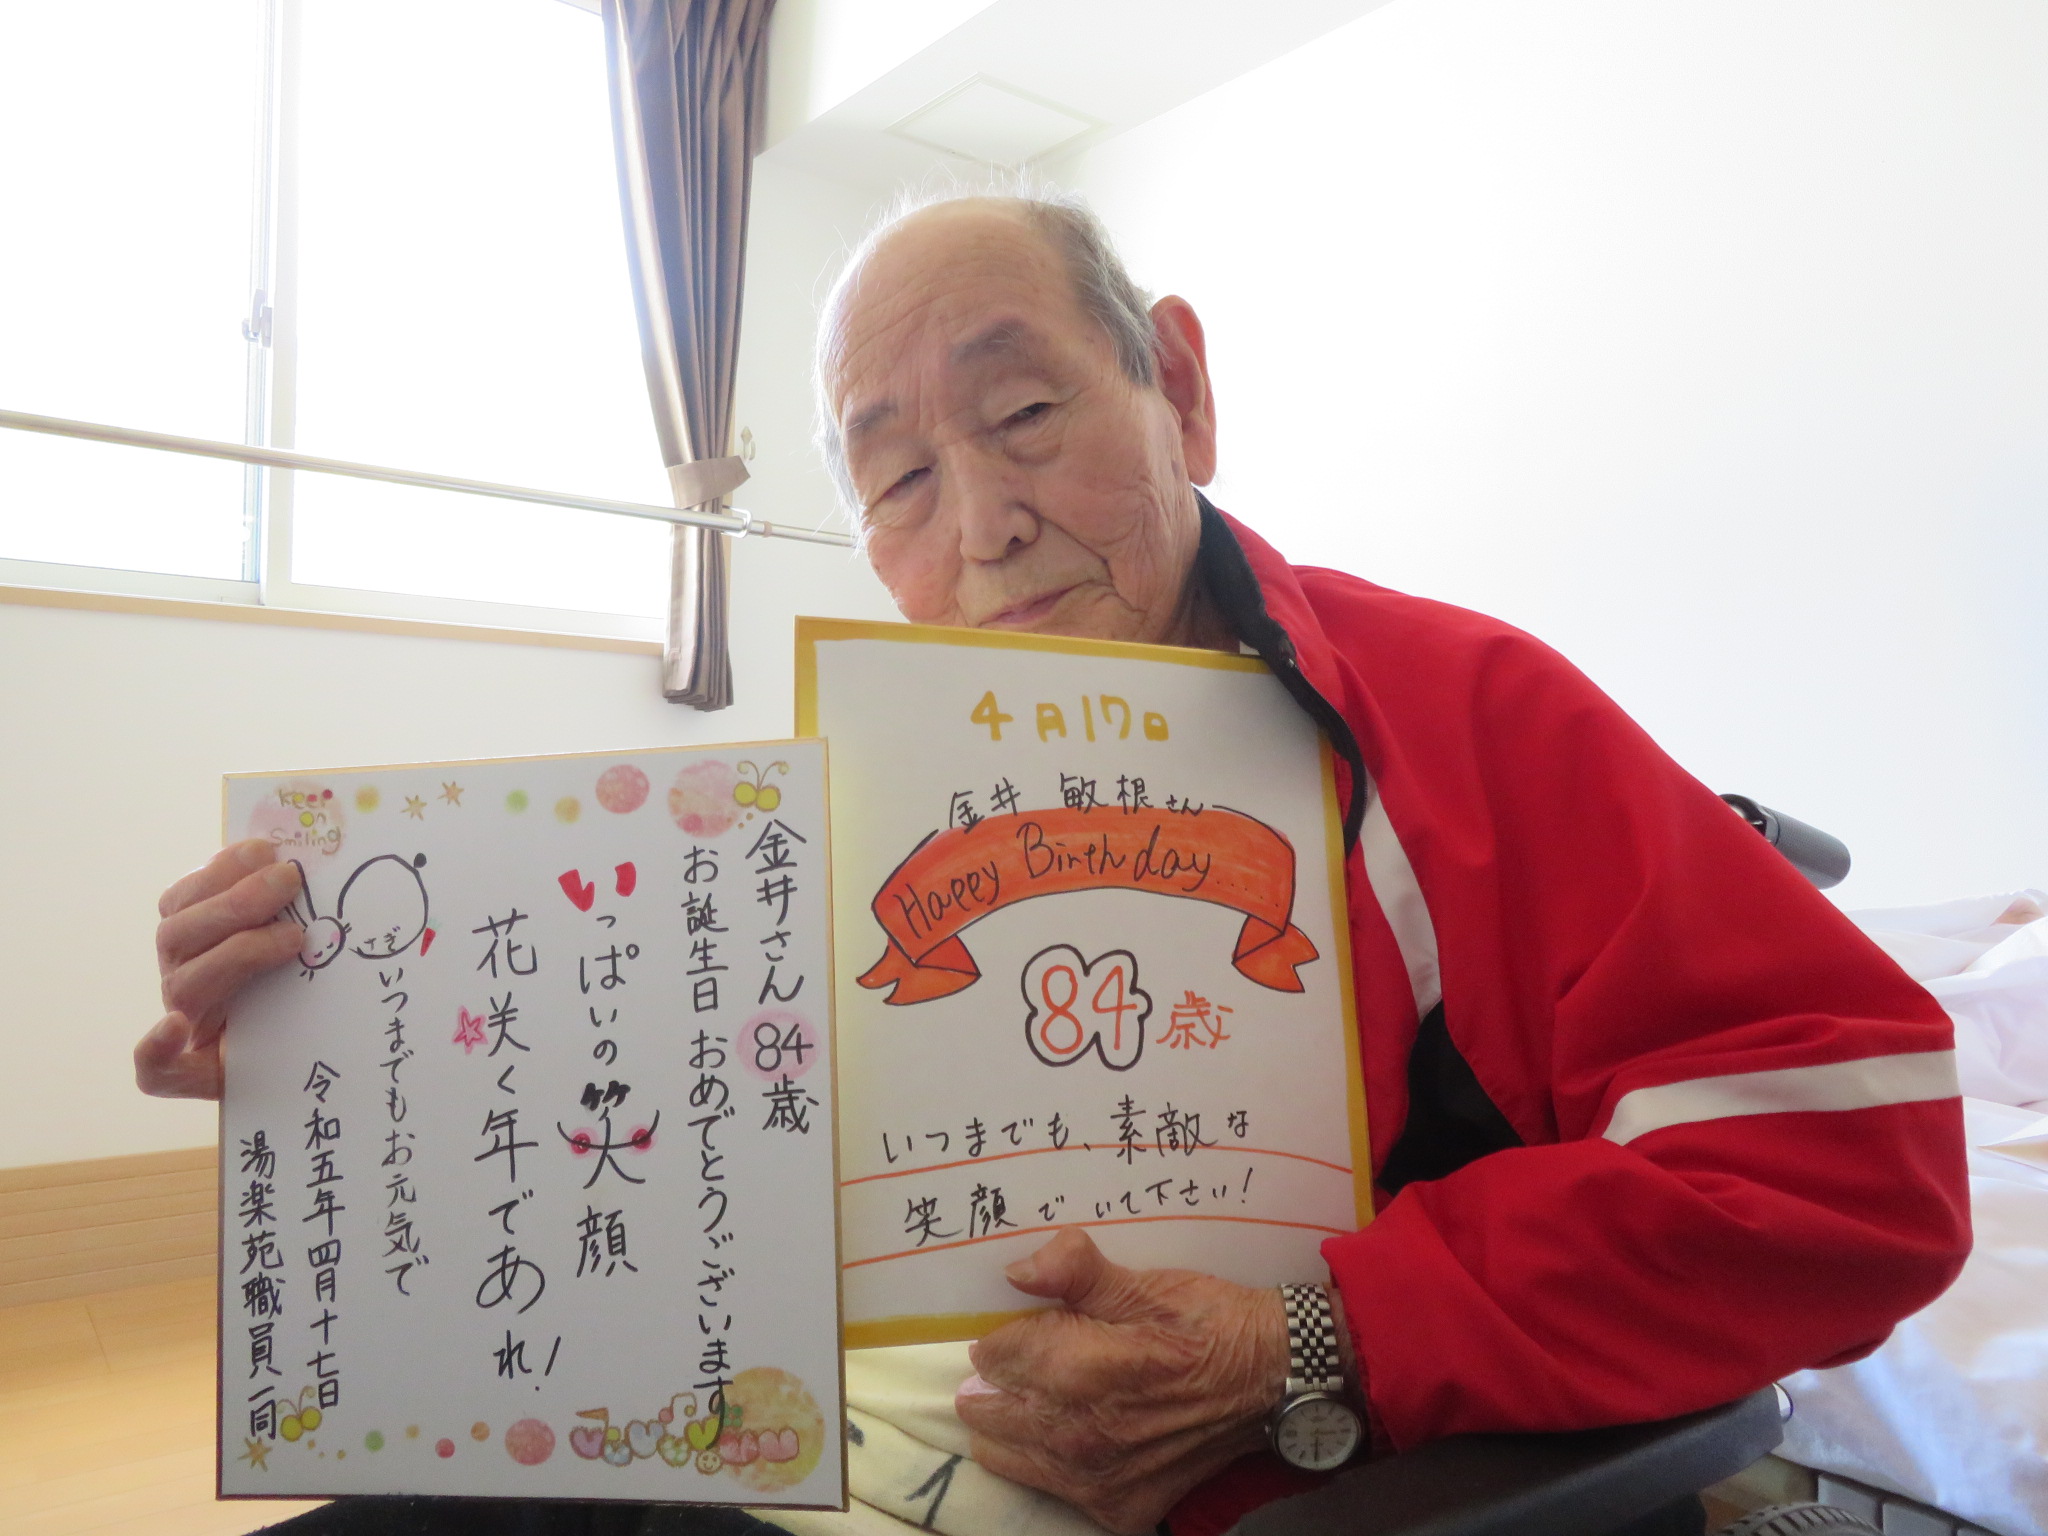 Keep
on
Smiling
金井さん 84歳
お誕生日 おめでとうございます
いっぱいの笑顔
花美く年であれ!
うさぎ
いつまでもお元気で
令和五年四月十七日
湯楽苑職員一同
4月17日
金井 敏根さん
Happy Birthday....
84歳
いつまでも、素敵な
笑顔でいて下さい!